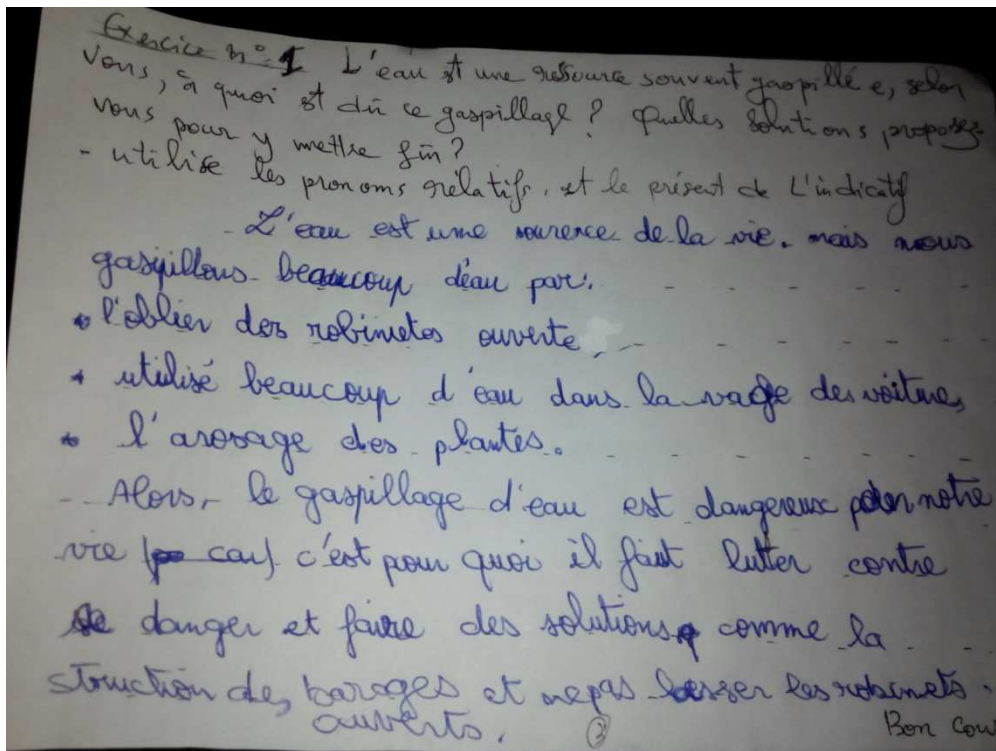 Exercice n° 1 L'eau st une ressource souvent gaspillée, selon
vous, à quoi st dû ce gaspillage ? Quelles solutions proposez-
vous pour y mettre fin ?
- utilise les pronoms relatifs, et le présent de L'indicatif
- L'eau est une sourence de la vie. mais nous
gaspillons beaucoup déau par.
* l'oblier des robinetes ouverte,
* utilisé beaucoup d'eau dans la vage des voitures
* l'arosage des plantes.
- Alors, le gaspillage d'eau est dangereux notre
vie car c'est pour quoi il faut lutter contre
danger et faire des solutions comme la
struction des barages et nepas lesser les robinets
ouverts. 3 Bon cou